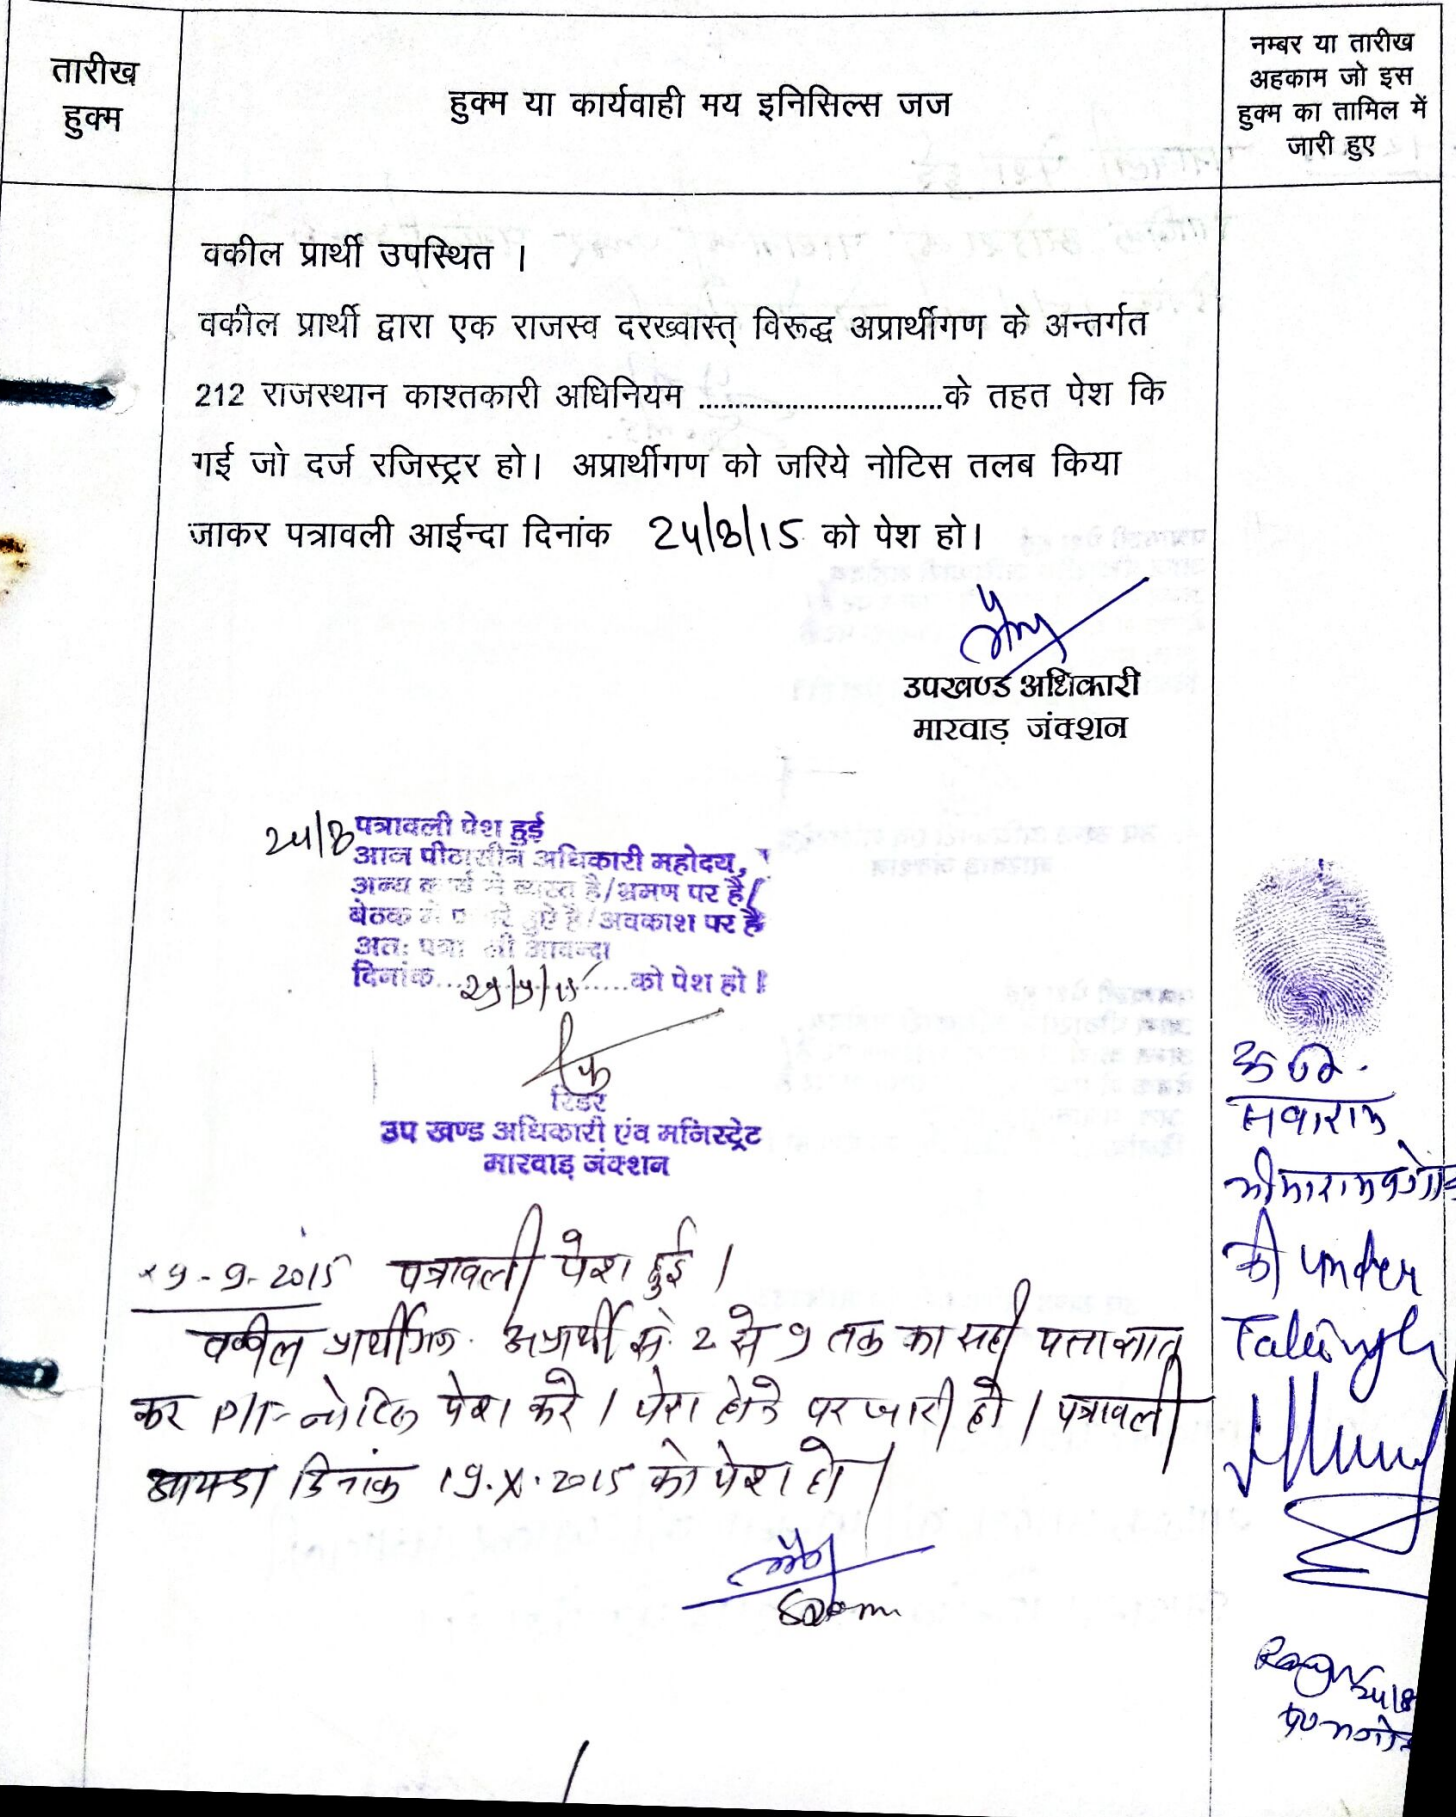 तारीख
हुक्म
हुक्म या कार्यवाही मय इनिसिल्स जज
नम्बर या तारीख
अहकाम जो इस
हुक्म का तामिल में
जारी हुए
वकील प्रार्थी उपस्थित ।
वकील प्रार्थी द्वारा एक राजस्व दरख्वास्त् विरूद्ध अप्रार्थीगण के अन्तर्गत
212 राजस्थान काश्तकारी अधिनियम ..................................के तहत पेश कि
गई जो दर्ज रजिस्ट्रर हो। अप्रार्थीगण को जरिये नोटिस तलब किया
जाकर पत्रावली आईन्दा दिनांक 24/8/15 को पेश हो।
उपखण्ड अधिकारी
मारवाड़ जंक्शन
24/8 पत्रावली पेश हुई
आज पीठासीन अधिकारी महोदय,
अन्य कार्य में व्यस्त है/भ्रमण पर है/
बेठक में हुऐ है/अवकाश पर है
अतः
दिनांक.............को पेश हो।
रिडर
उप खण्ड अधिकारी एंव मजिस्ट्रेट
मारवाड़ जंक्शन
9-2015 पत्रावली पेश हुई।
वकील अप्रार्थी सं. 2 से 9 तक का सही पता
कर नोटिस पेश करे। पेश होने पर जारी हो। पत्रावली
दिनांक 19.X.2015 को पेश हो।
की under
24/8